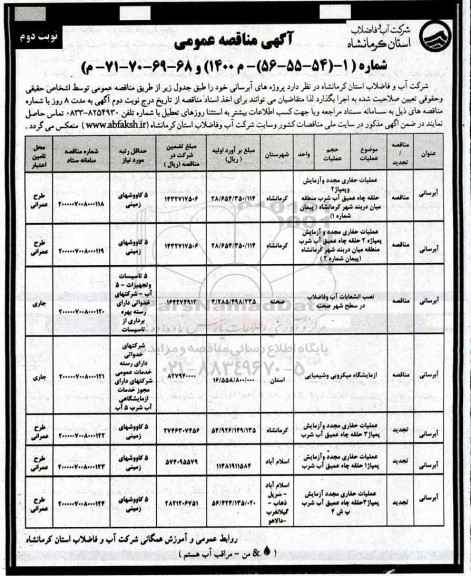 شرکت آب و فاضلاب
استان کرمانشاه
آگهی مناقصه عمومی
نوبت دوم
شماره ( ۱-(۵۴-۵۵-۵۶)-م ۱۴۰۰) و ۶۸-۶۹-۷۰-۷۱-م)
شرکت آب و فاضلاب استان کرمانشاه در نظر دارد پروژه های آبرسانی خود را طبق جدول زیر از طریق مناقصه عمومی توسط اشخاص حقیقی
وحقوقی تعیین صلاحیت شده به اجرا بگذارد لذا متقاضیان می توانند برای اخذ اسناد مناقصه از تاریخ درج نوبت دوم آگهی به مدت ۸ روز با شماره
مناقصه های ذیل به سامانه ستاد مراجعه ویا جهت کسب اطلاعات بیشتر به استثنا روزهای تعطیل با شماره تلفن ۸۲۵۴۹۳۰-۰۸۳۳ تماس حاصل
نمایند در ضمن آگهی مذکور در سایت ملی مناقصات کشور وسایت شرکت آب وفاضلاب استان کرمانشاه (www.abfaksh.ir) منعکس می گردد.
عنوان | مناقصه / تجدید | موضوع عملیات | حجم عملیات | واحد | شهرستان | مبلغ بر آورد اولیه (ریال) | مبلغ تضمین شرکت در مناقصه (ریال) | حداقل رتبه مورد نیاز | شماره مناقصه سامانه ستاد | محل تامین اعتبار
آبرسانی | مناقصه | عملیات حفاری مجدد وآزمایش وپمپاژ ۲ حلقه چاه عمیق آب شرب منطقه میان دربند شهر کرمانشاه ( پیمان شماره ۱) | کرمانشاه | ۲۸/۶۵۴/۳۵۰/۱۱۴ | ۱۴۳۲۷۱۷۵۰۶ | ۵ کاووشهای زمینی | ۲۰۰۰۰۰۷۰۰۸۰۰۰۱۱۸ | طرح عمرانی
آبرسانی | مناقصه | عملیات حفاری مجدد و آزمایش پمپاژ ۲ حلقه چاه عمیق آب شرب منطقه میان دربند شهر کرمانشاه (پیمان شماره ۲) | کرمانشاه | ۲۸/۶۵۴/۳۵۰/۱۱۴ | ۱۴۳۲۷۱۷۵۰۶ | ۵ کاووشهای زمینی | ۲۰۰۰۰۰۷۰۰۸۰۰۰۱۱۹ | طرح عمرانی
آبرسانی | مناقصه | نصب انشعابات آب وفاضلاب در سطح شهر صحنه | صحنه | ۳/۲۸۵/۴۹۸/۲۳۵ | ۱۶۴۲۷۴۹۱۲ | ۵ تاسیسات وتجهیزات - ۵ آب - شرکتهای خدواتی دارای رسته بهره برداری از تاسیسات | ۲۰۰۰۰۰۷۰۰۸۰۰۰۱۲۰ | جاری
آبرسانی | مناقصه | ازمایشگاه میکروبی وشیمیایی | استان | ۱۶/۵۵۸/۸۰۰/۰۰۰ | ۸۲۷۹۴۰۰۰۰ | شرکتهای خدواتی دارای رسته خدمات عمومی شرکتهای دارای مجوز خدمات ازمایشگاهی آب شرب ۵ آب | ۲۰۰۰۰۰۷۰۰۸۰۰۰۱۲۱ | جاری
آبرسانی | تجدید | عملیات حفاری مجدد وآزمایش پمپاژ ۳ حلقه چاه عمیق آب شرب | کرمانشاه | ۵۴/۹۲۶/۱۴۹/۱۳۵ | ۲۷۴۶۳۰۷۴۵۶ | ۵ کاووشهای زمینی | ۲۰۰۰۰۰۷۰۰۸۰۰۰۱۲۲ | طرح عمرانی
آبرسانی | تجدید | عملیات حفاری مجدد وآزمایش پمپاژ ۱ حلقه چاه عمیق آب شرب | اسلام آباد | ۱۱۴۸۱۹۱۱۵۸۴ | ۵۷۴۰۹۵۵۷۹ | ۵ کاووشهای زمینی | ۲۰۰۰۰۰۷۰۰۸۰۰۰۱۲۳ | طرح عمرانی
آبرسانی | تجدید | عملیات حفاری مجدد وآزمایش پمپاژ ۳ حلقه چاه عمیق آب شرب پ ش ۴ | اسلام آباد - سرپل ذهاب - گیلانغرب - دالاهو | ۵۶/۴۲۴/۱۳۵/۰۲۰ | ۲۸۲۱۲۰۶۷۵۱ | ۵ کاووشهای زمینی | ۲۰۰۰۰۰۷۰۰۸۰۰۰۱۲۴ | طرح عمرانی
پایگاه اطلاع رسانی مناقصه و مزایده
۰۲۱-۸۸۳۴۹۶۷۰-۵
روابط عمومی و آموزش همگانی شرکت آب و فاضلاب استان کرمانشاه
( & من - مراقب آب هستم )